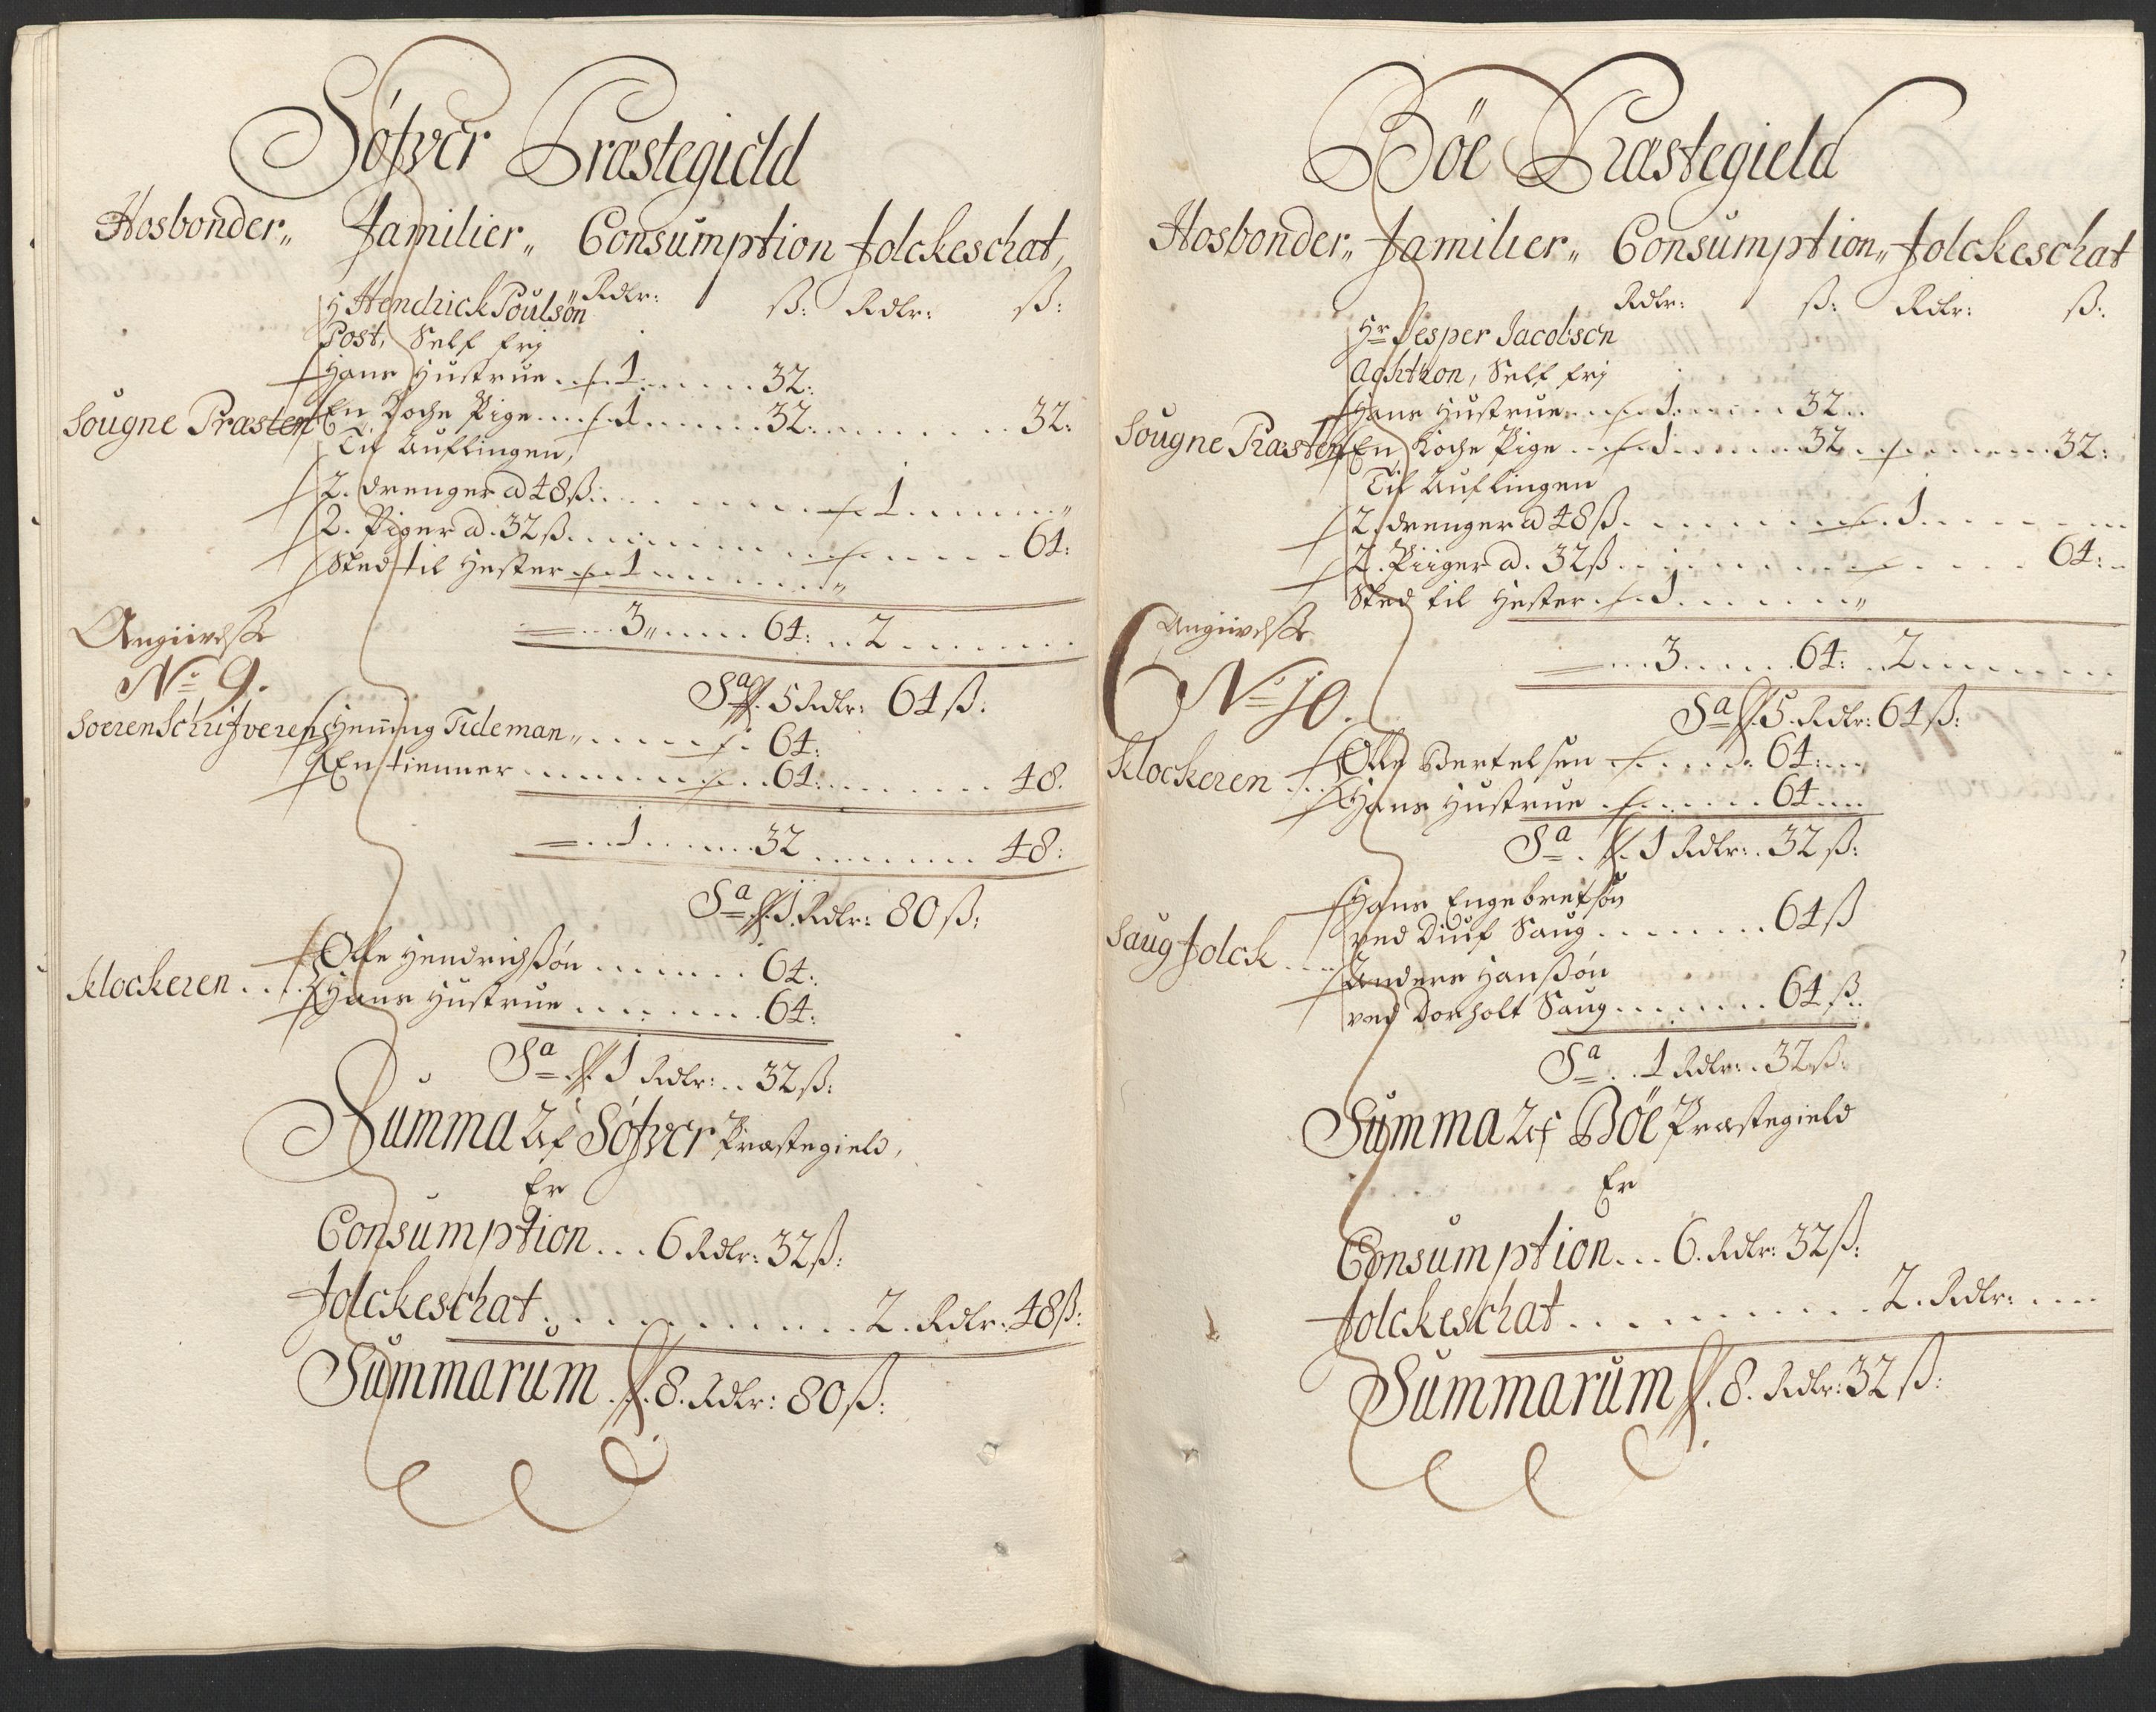 Söfver Præstegield
Hosbonder„ Familier„ Consumption Folckeschat,
Rdlr: ß: Rdlr: ß:
H Hendrick Poulsøn
Post, Self frj
Hans Hustrue . . 1 . . . . . . 32:
Sougne Præsten En Koche Pige . . . . 1 . . . . . . 32: . . . . . . . . 32:
Til Auflingen,
2. drenger a 48 ß: . . . . . . . . . 1 . . . . . „
2. Piger a. 32 ß . . . . . . . . . . . . . 64:
Sted til Hester . . 1 . . . . . . . „
Angiivelse
3„ . . . . . 64: . . 2 . . . . . . .
No 9.
Sa 5 Rdlr: 64 ß:
Sorenschrifveren Heming Tideman„ . . . . . 64:
En tienner . . . . . . . . . 64: . . . . . . . . 48.
1 . . . . . . 32 . . . . . . . . 48:
Sa 1 Rdlr: 80 ß:
Klockeren . . . Olle Hendrichßøn . . . . . . . 64:
Hans Hustrue . . . . . . . . 64:
Sa 1 Rdlr: . . 32 ß:
Summa Af Söfver Præstegield,
Er
Consumption . . . 6 Rdlr: 32 ß:
Folckeschat . . . . . . . . . . . 2. Rdlr: 48 ß:
Summarum . 8. Rdlr: 80 ß:
Böe Præstegield
Hosbonder„ Familier„ Consumption„ Folckeschat
Rdlr: ß: Rdlr: ß:
Hr Jesper Jacobsen
Achton, Self frj
Hans Hustrue . . . 1 . . . . . 32 . .
Sougne Præsten En Koche Pige . . 1 . . . . . . 32 . . . . . . . . 32:
Til Auflingen
2. drenger a 48 ß . . . . . . . . 1 . . . . . . .
2. Piiger a. 32 ß . . . . . . . . . . . . . . 64: .
Sted til Hester . . 1 . . . . . . . „
Angiivelse
3 . . . . . 64: . . 2 . . . . . . .
No 10.
Sa 5. Rdlr: 64 ß:
Klockeren . . . Olle Bertelsen . . . . . 64: . . .
Hans Hustrue . . . . . . . 64 . . .
Sa . 1 Rdlr: . 32 ß:
Hans Engebretsøn
Saug Folck . . . ved Diuf Saug . . . . . . . . 64 ß
Anders Hanßøn
ved Dorholt Saug . . . . . . . 64 ß.
Sa . . 1 Rdlr: . 32 ß:
Summa Af Böe Præstegield
Er
Consumption . . . 6. Rdlr: 32 ß:
Folckeschat . . . . . . . . . . . 2. Rdlr: . . . .
Summarum . 8. Rdlr: 32 ß: